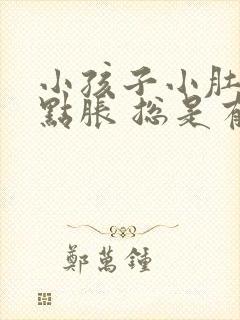 小孩子小肚
點脹 總是
鄭萬鍾